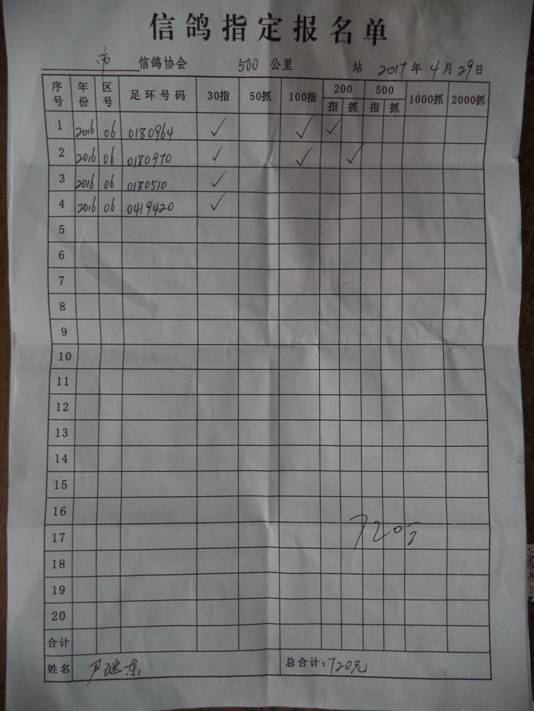 信鸽指定报名单
市 信鸽协会 500 公里 站 2017年4月29日
序号 年份 区号 足环号码 30指 50抓 100指 200 指 抓 500 指 抓 1000抓 2000抓
1 2016 06 0180964 ✓ ✓ ✓
2 2016 06 0180970 ✓ ✓ ✓
3 2016 06 0180510 ✓
4 2016 06 0419420 ✓
5
6
7
8
9
10
11
12
13
14
15
16
17 720
18
19
20
合计
姓名 总合计：720元